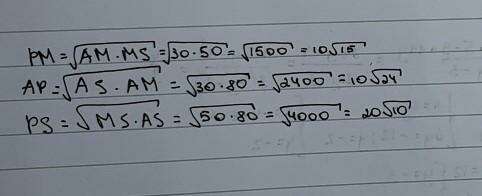 PM = √AM·MS = √30·50 = √1500 = 10√15
AP = √AS·AM = √30·80 = √2400 = 10√24
PS = √MS·AS = √50·80 = √4000 = 20√10